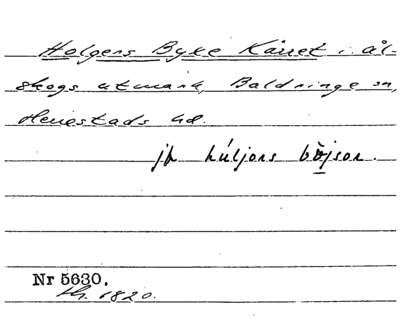 Holgers Byke Kärret i. ål-
skogs utmark, Baldringe sn,
Herrestads hd.
jfr húljors böjsor.
Nr 5630.
1820.